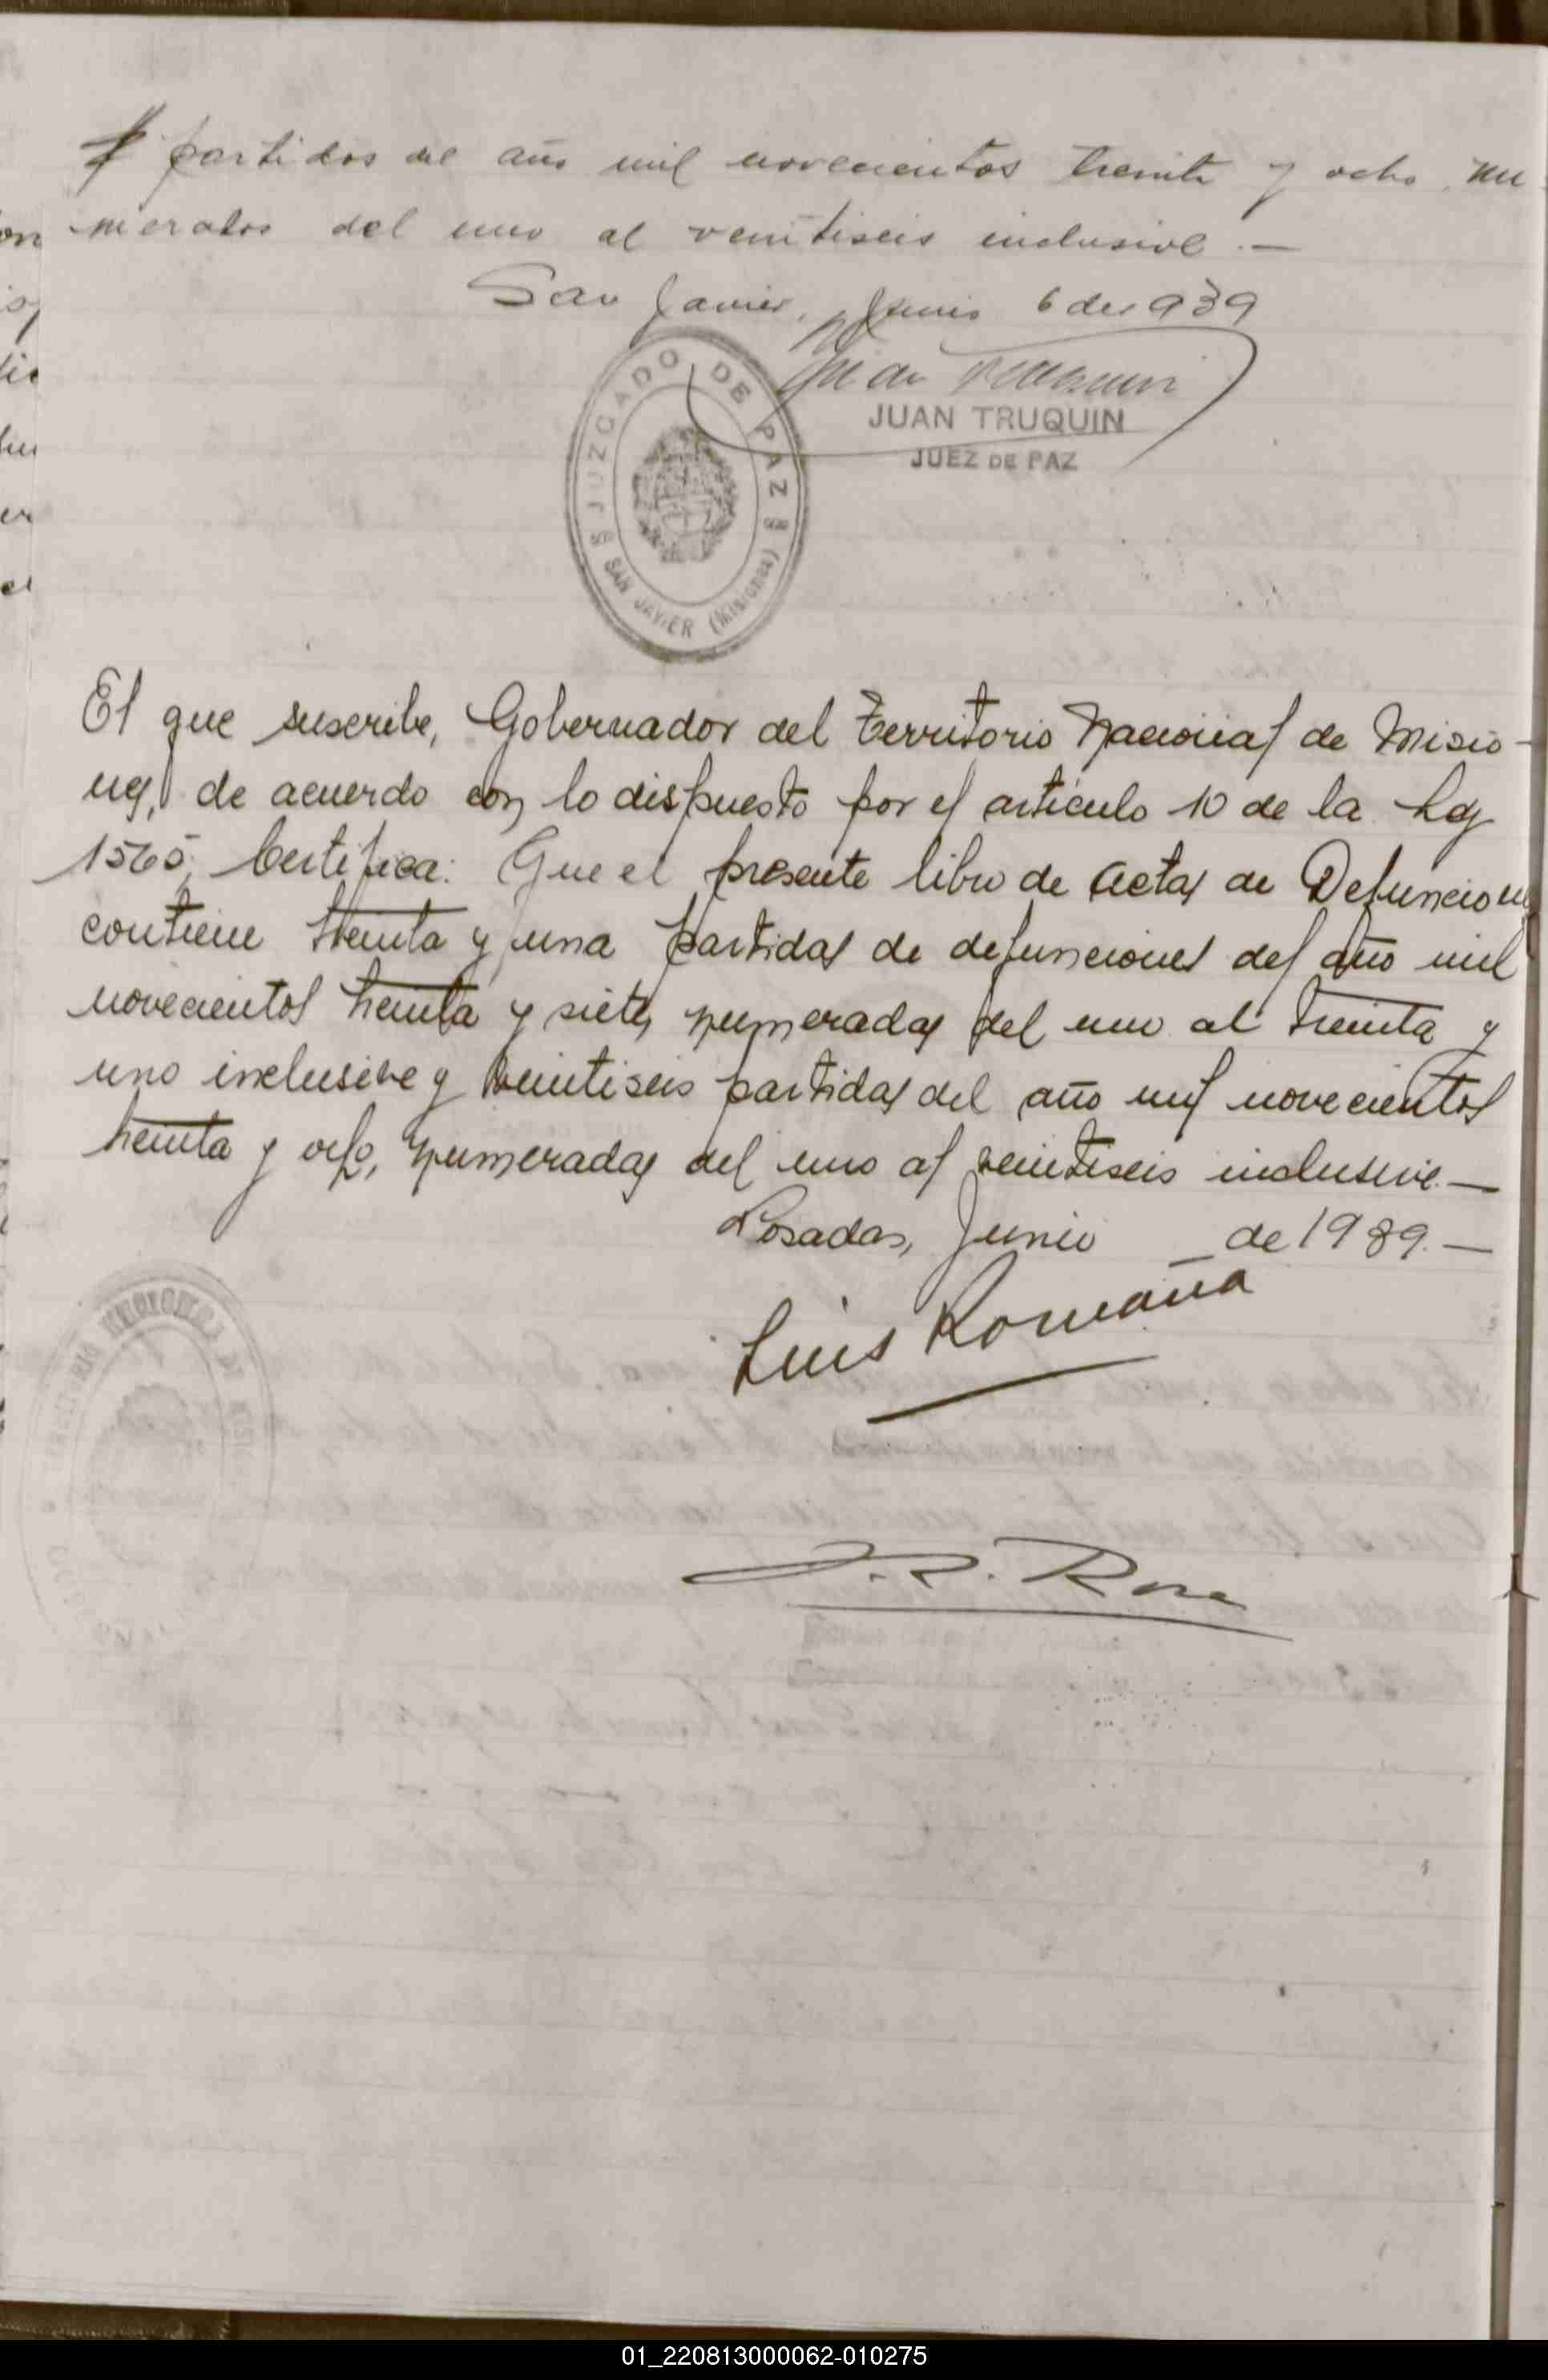 partidos del año mil novecientos treinta y ocho, nu
merados del uno al veintiseis inclusive.—
San Javier, Junio 6 de 1939
JUZGADO DE PAZ
SAN JAVIER (Misiones)
JUAN TRUQUIN
JUEZ DE PAZ
El que suscribe, Gobernador del Territorio Nacional de Misio-
nes, de acuerdo con lo dispuesto por el artículo 10 de la Ley
1565, Certifica: Que el presente libro de Actas de Defunciones
contiene treinta y una partidas de defunciones del año mil
novecientos treinta y siete, numeradas del uno al treinta y
uno inclusive y veintiseis partidas del año mil novecientos
treinta y ocho, numeradas del uno al veintiseis inclusive.—
Posadas, Junio _ de 1939.—
Luis Romaña
01_220813000062-010275